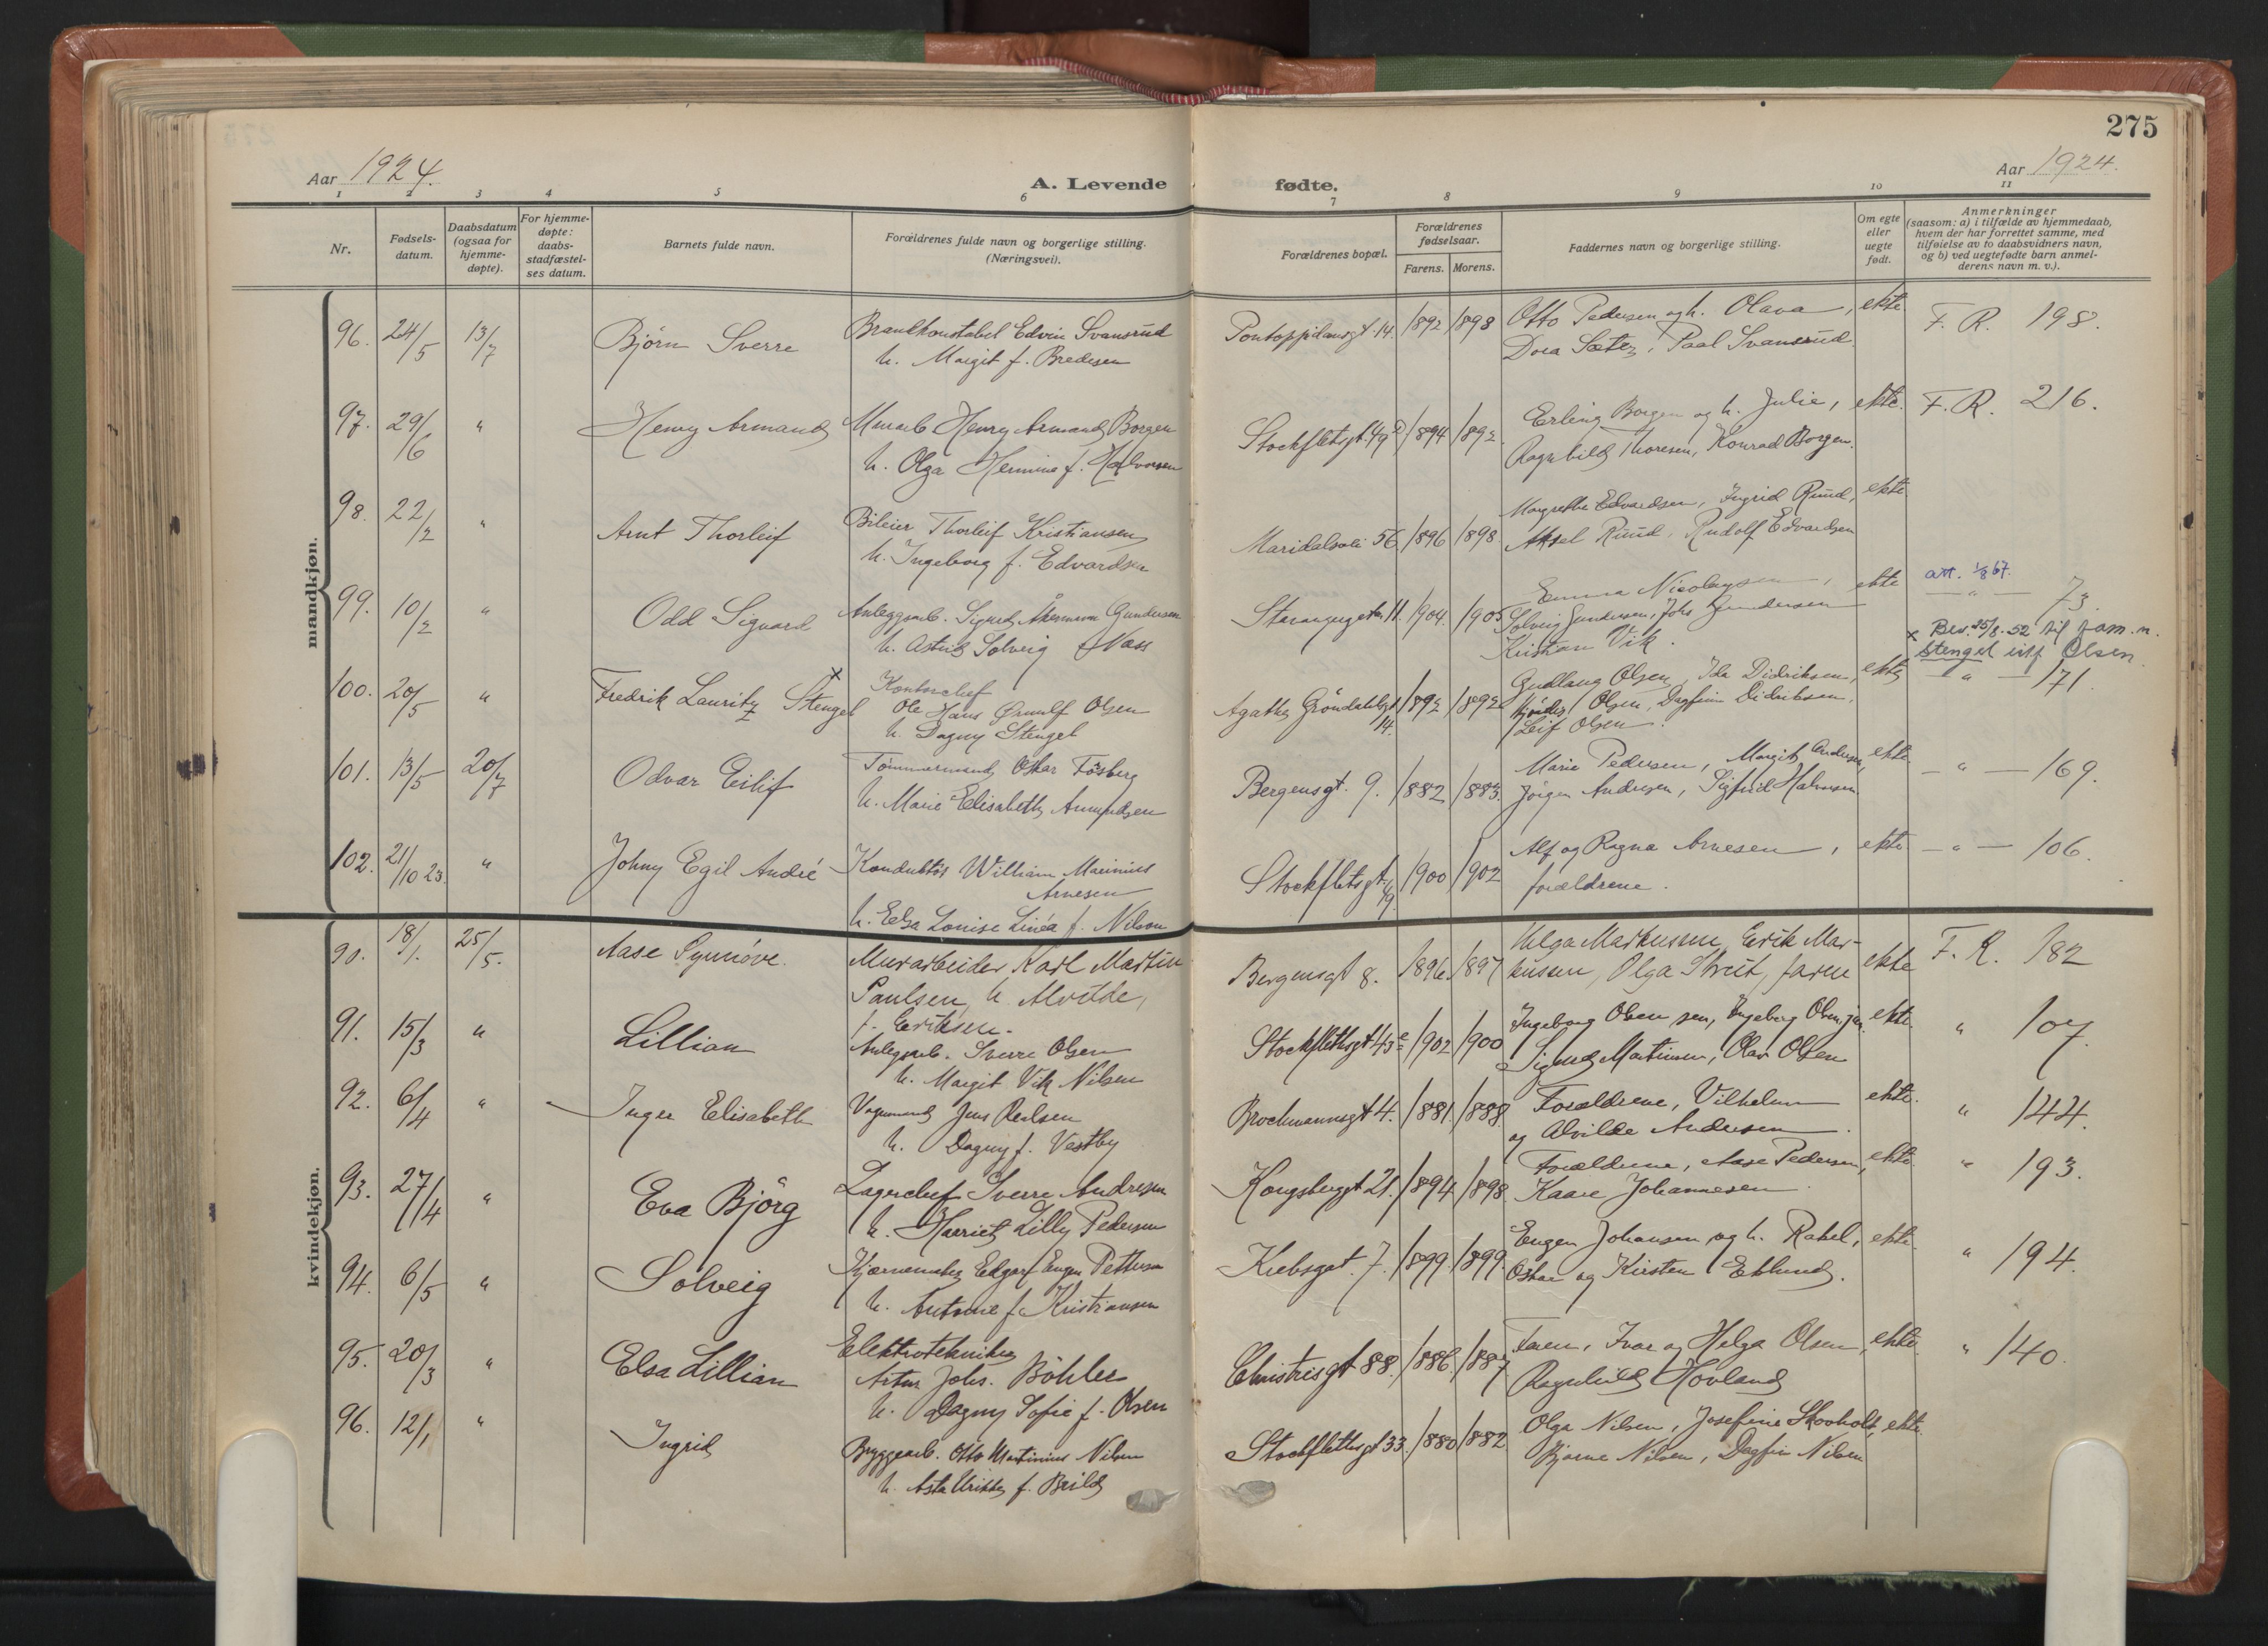 275
Aar 1924.
A. Levende fødte.
Aar 1924.
1 2 3 4 5 6 7 8 9 10 11
Nr.
Fødsels-
datum.
Daabsdatum
(ogsaa for
hjemme-
døpte).
For hjemme-
døpte:
daabs-
stadfæstel-
ses datum.
Barnets fulde navn.
Forældrenes fulde navn og borgerlige stilling.
(Næringsvei).
Forældrenes bopæl.
Forældrenes
fødselsaar.
Farens. Morens.
Faddernes navn og borgerlige stilling.
Om egte
eller
uegte
født.
Anmerkninger
(saasom: a) i tilfælde av hjemmedaab,
hvem der har forrettet samme, med
tilføielse av to daabsvidners navn,
og b) ved uegtefødte barn anmel-
derens navn m. v.).
mandkjøn.
96. 24/5 13/7 Björn Sverre
Brandkonstabel Edvin Svansrud
h. Margit f. Bredesen
Pontoppidansgt. 14. 1892 1898
Otto Pedersen og h. Olava,
Dora Sæter, Paal Svansrud.
ekte F. R. 198.
97. 29/6 " Henry Armand
Murarb. Henry Armand Borgen
h. Olga Hermine f. Halvorsen
Stockfletsgt. 49 1894 1892.
Erling Borgen og h. Julie,
Ragnhild Thoresen, Konrad Borgen.
ekte. F. R. 216.
98. 22/2 " Arnt Thorleif
Bileier Thorleif Kristiansen
h. Ingeborg f. Edvardsen
Maridalsvei 56 1896 1898.
Margrethe Edvardsen, Ingrid Ruud,
Aksel Ruud, Rudolf Edvardsen
ekte
99. 10/2 " Odd Sigvard
Anleggsarb. Sigurd Åkermann Gundersen
h. Astrid Solveig Næss
Stavangergaten 11. 1904. 1905
Emma Nicolaysen,
Solveig Gundersen, Johs. Gundersen
Kristian Vik.
ekte
att. 1/8 67.
— " — 73.
100. 20/5 " Fredrik Lauritz Stengel x
Kontorchef
Ole Hans Ørnulf Olsen
h. Dagny Stengel
Agathe Gröndahlsgt 14. 1892 1892
Gudlaug Olsen, Ida Didriksen,
Olsen, Dagfinn Didriksen,
Leif Olsen.
ekte
x Bev. 25/8-52 til fam. n.
Stengel istf Olsen.
— " — 171.
101. 13/5 20/7 Odvar Eilif
Tömmermand Oskar Fosberg
h. Marie Elisabeth Amundsen
Bergensgt. 9. 1882 1883.
Marie Pedersen, Margit Andersen,
Jörgen Andersen, Sigfrid Halvorsen.
ekte — " — 169.
102. 21/10 23. " Johny Egil André
Konduktör William Marinius
Arnesen
h. Elsa Louise Linéa f. Nilson
Stockfletsgt. 49. 1900 1902
Alf og Ragna Arnesen,
forældrene.
ekte — " — 106.
kvindekjøn.
90. 18/1. 25/5. Aase Synnöve.
Murarbeider Karl Martin
Paulsen, h. Alvilde,
f. Eriksen.
Bergensgt 8. 1896. 1897
Helga Markussen, Erik Mar-
kussen, Olga Streit, faren
ekte F. R. 182
91. 15/3 " Lillian
Anlegsarb. Sverre Olsen
h. Margit Vik Nilsen
Stockflethsgt 43c 1902 1900
Ingeborg Olsen sen, Ingeborg Olsen, jun.
Sigurd Martinsen, Olav Olsen
ekte. " 107.
92. 6/4 " Inger Elisabeth
Vognmand Jens Reilsen
h. Dagny f. Vestby
Brochmannsgt 4. 1881. 1888.
Forældrene, Vilhelm
og Alvilde Andersen.
ekte. " 144.
93. 27/4 " Eva Björg
Lagerchef Sverre Andresen
h. Harriet Lilly Pedersen
Kongsbergt 21. 1894 1898
Forældrene, Aase Pedersen,
Kaare Johannesen.
ekte. " 193.
94. 6/5 " Solveig
Kjernemaker Edgar Eugen Pettersen
h. Antonie f. Kristiansen
Krebsgat. 7. 1899. 1899.
Eugen Johansen og h. Rakel,
Oskar og Kirsten Eklund.
ekte. " 194.
95. 20/3 " Elsa Lillian
Elektrotekniker
Artur Johs. Böhler
h. Dagny Sofie f. Olsen
Christiesgt 88. 1886. 1887
Faren, Ivar og Helga Olsen,
Ragnhild Hovland
ekte. " 140.
96. 12/1 " Ingrid
Bryggearb. Otto Martinius Nilsen
h. Asta f.
Stockflethsgt 33. 1880 1882
Olga Nilsen, Josefine Skovholt,
Bjarne Nilsen, Dagfin Nilsen
ekte.